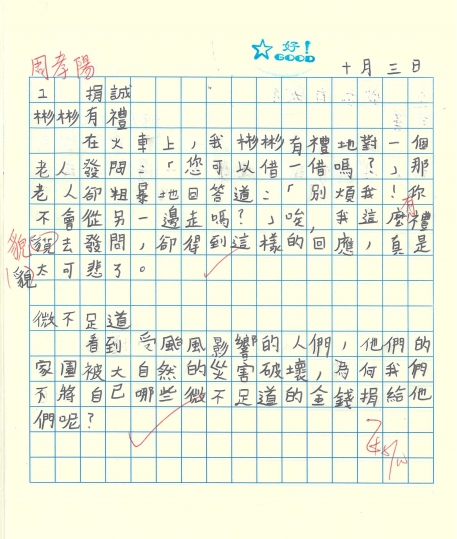 好!
GOOD
周孝陽
十月三日
1 捐誠
彬彬有禮
在火車上,我彬彬有禮地對一個
老人發問:「您可以借一借嗎?」那
老人卻粗暴地回答道:「別煩我!你
不會從另一邊走嗎?」唉,我這麼有禮
貌去發問,卻得到這樣的回應,真是
貌
貌
太可悲了。
微不足道
看到受颱風影響的人們,他們的
家園被大自然的災害破壞,為何我們
不將自己哪些微不足道的金錢捐給他
們呢?